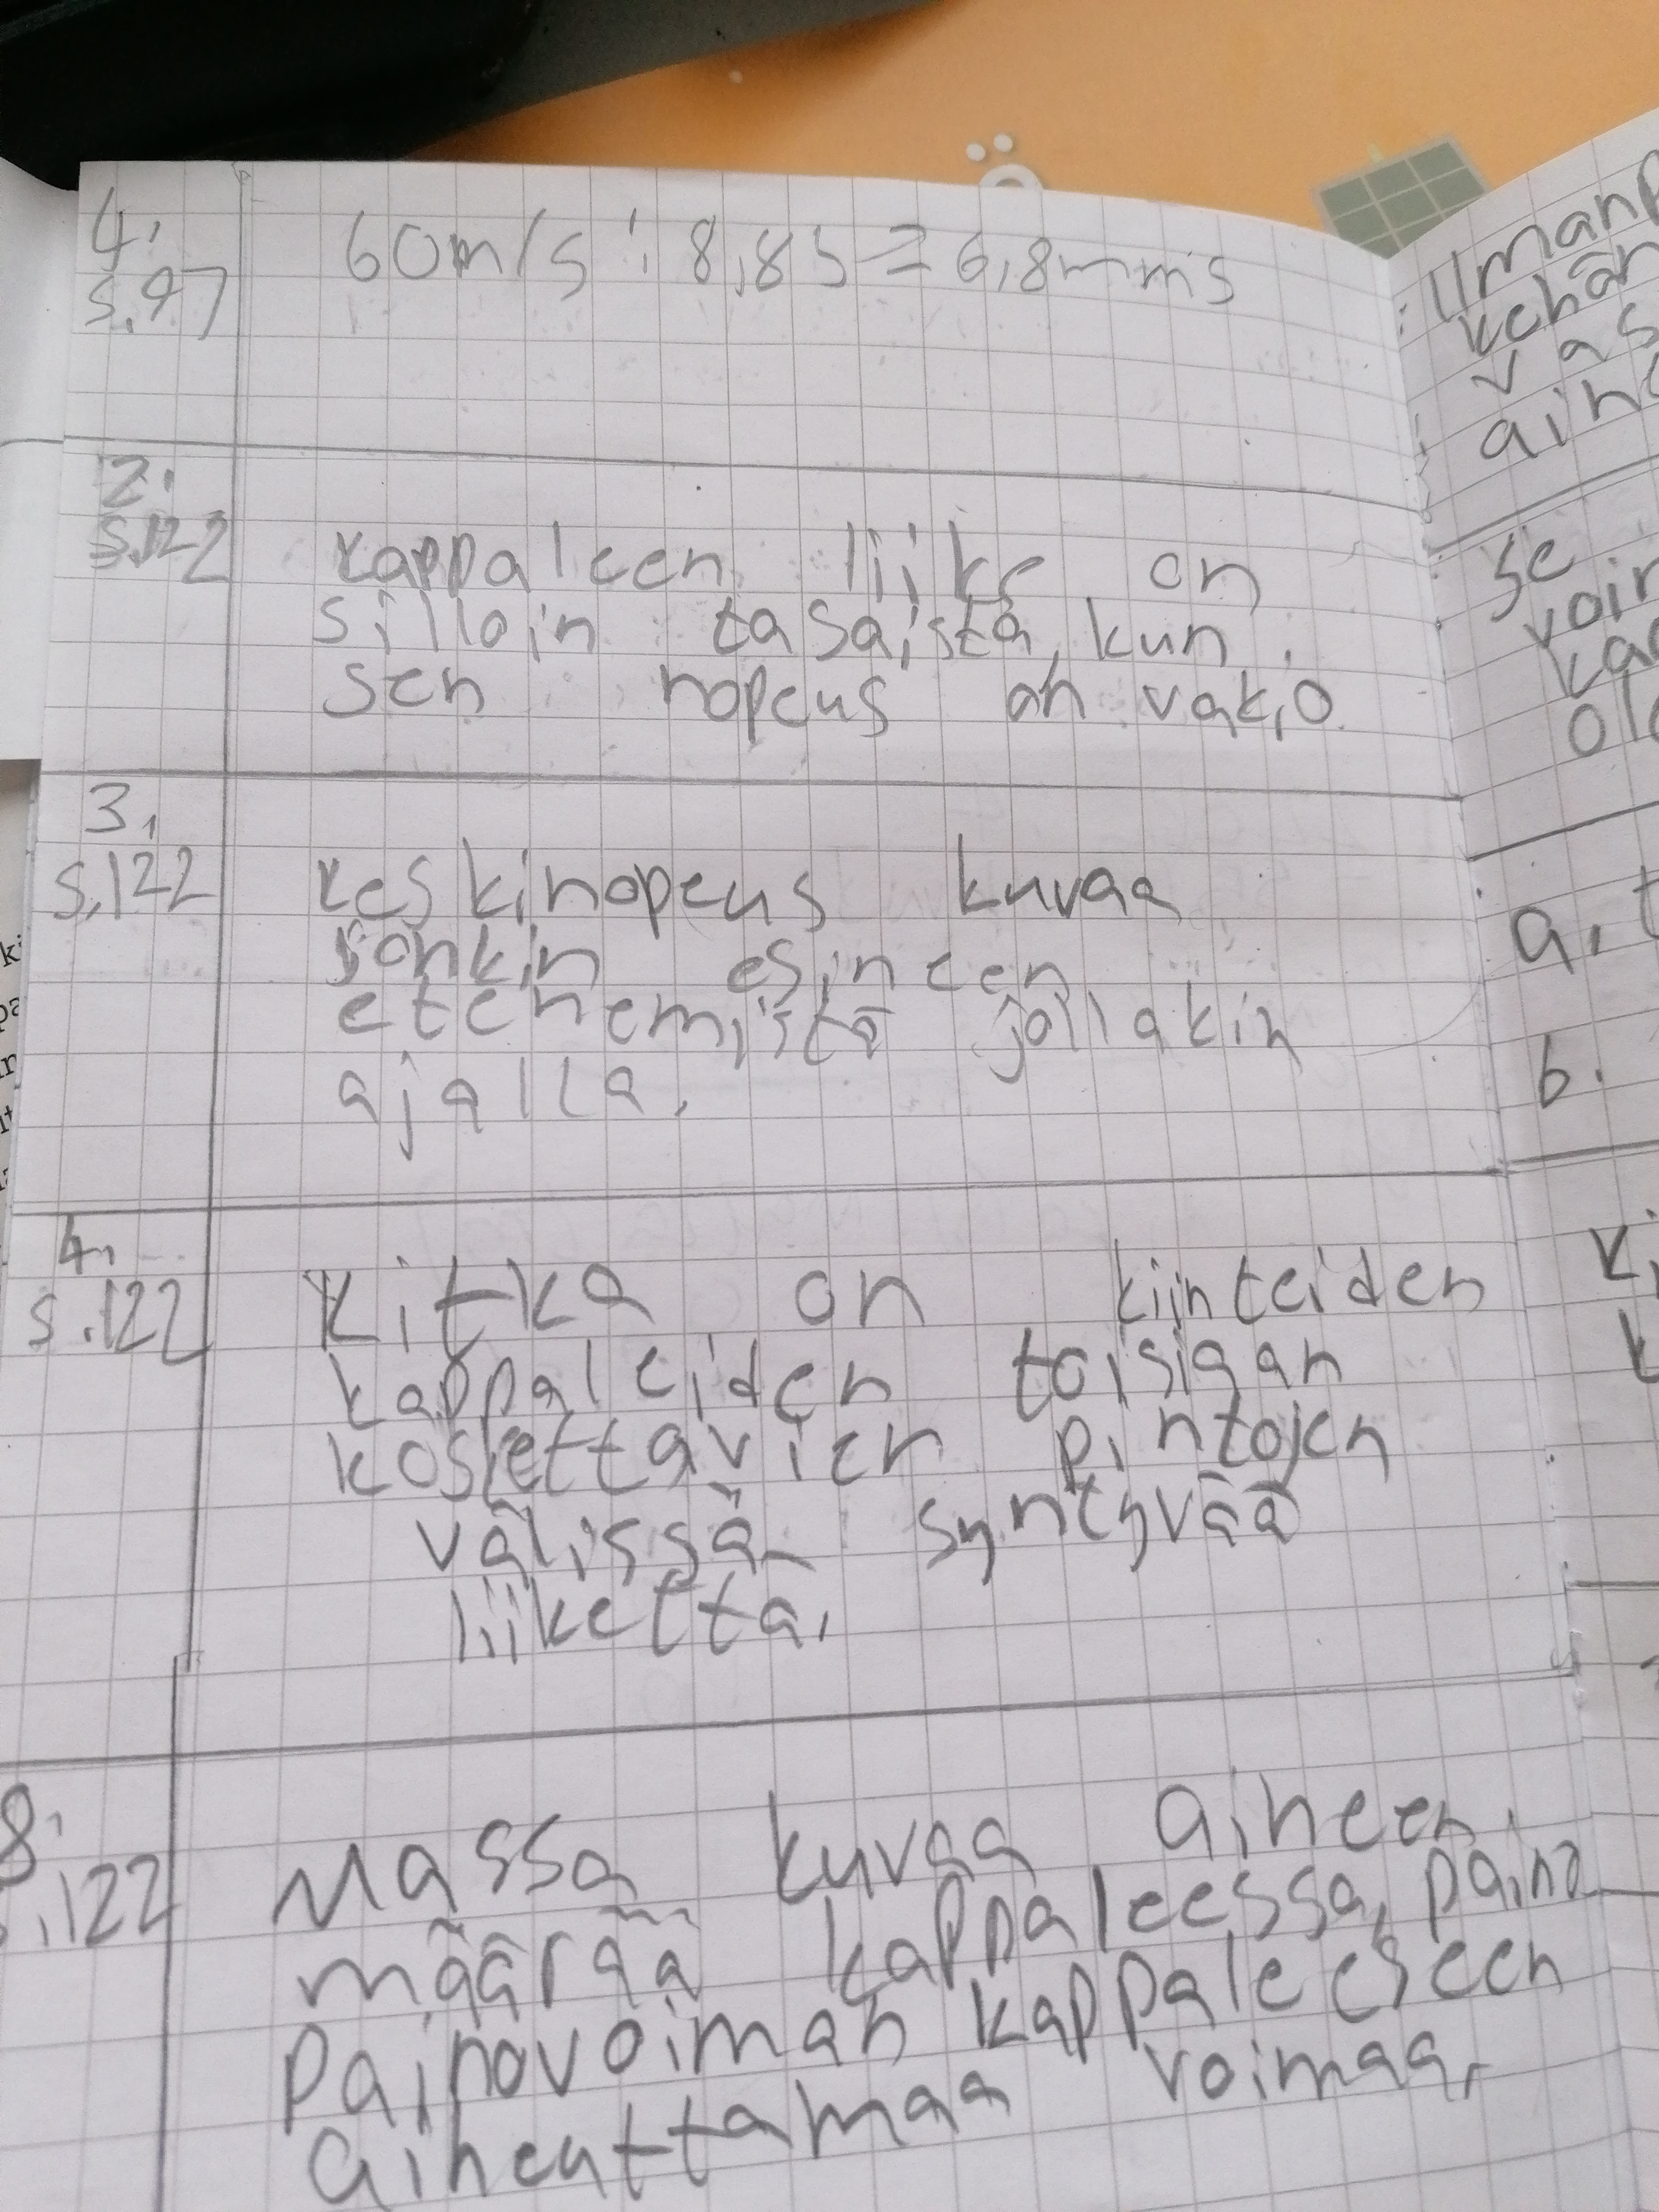 4.
s.97
60m/s : 8,8s = 6,8mms
2.
s.122
kappaleen liike on
silloin tasaista, kun
sen nopeus on vakio
3.
s.122
keskinopeus kuvaa
jonkin esineen
etenemistä jollakin
ajalla.
4.
s.122
Kitka on kiinteiden
kappaleiden toisiaan
koskettavien pintojen
välissä syntyvää
liikettä.
8.
s.122
Massa kuvaa aineen
määrää kappaleessa, paino
painovoiman kappaleeseen
aiheuttamaa voimaa.
Se
a.
b.